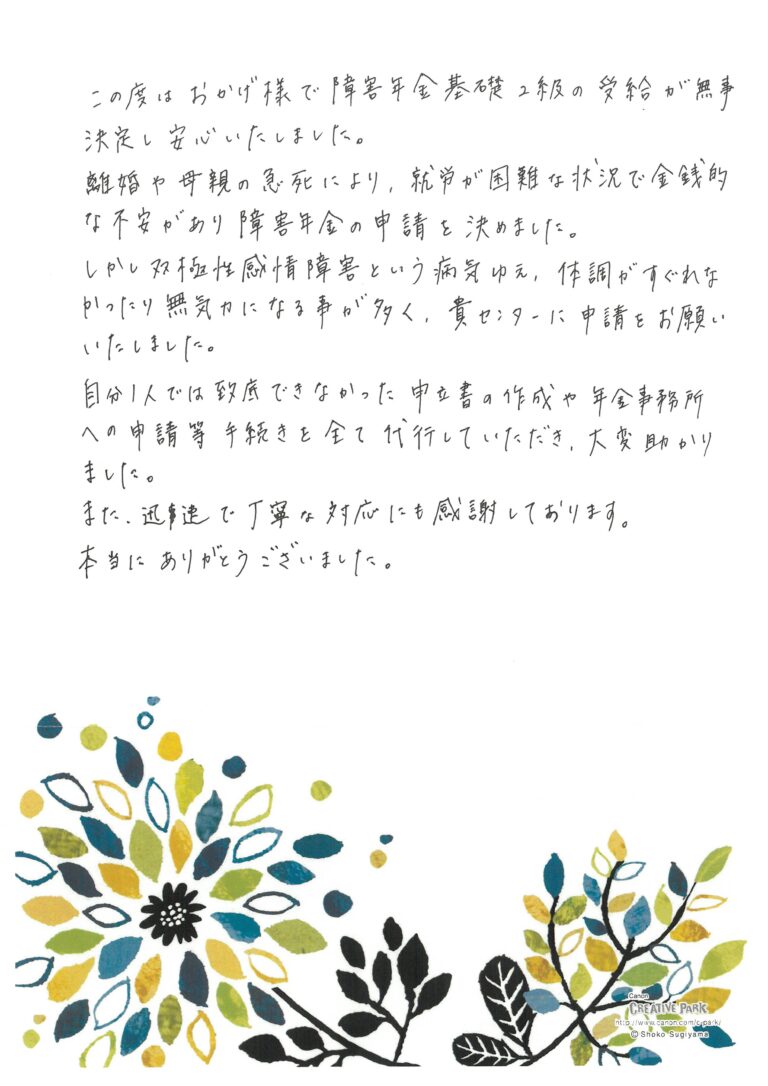 この度はおかげ様で障害年金基礎2級の受給が無事
決定し安心いたしました。
離婚や母親の急死により、就労が困難な状況で金銭的
な不安があり障害年金の申請を決めました。
しかし双極性感情障害という病気ゆえ、体調がすぐれな
かったり無気力になる事が多く、貴センターに申請をお願い
いたしました。
自分1人では到底できなかった申立書の作成や年金事務所
への申請等手続きを全て代行していただき、大変助かり
ました。
また、迅速で丁寧な対応にも感謝しております。
本当にありがとうございました。
Canon
CREATIVE PARK
http://www.canon.com/c-park/
© Shoko Sugiyama